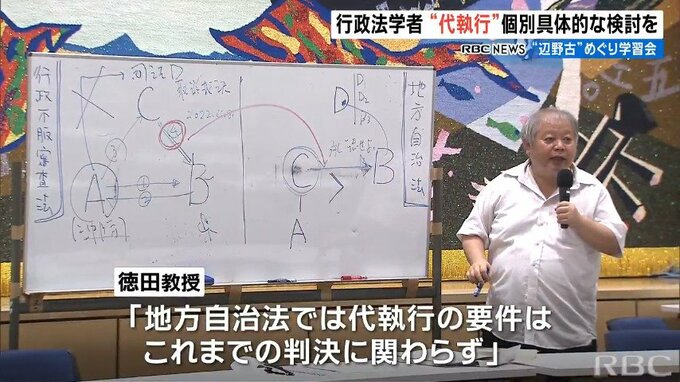 行政法学者 “代執行” 個別具体的な検討を
RBC NEWS “辺野古”めぐり学習会
行政不服審査法
地方自治法
C
D
A
B
C
B
A
③
④
①
②
徳田教授
「地方自治法では代執行の要件は
これまでの判決に関わらず」
RBC